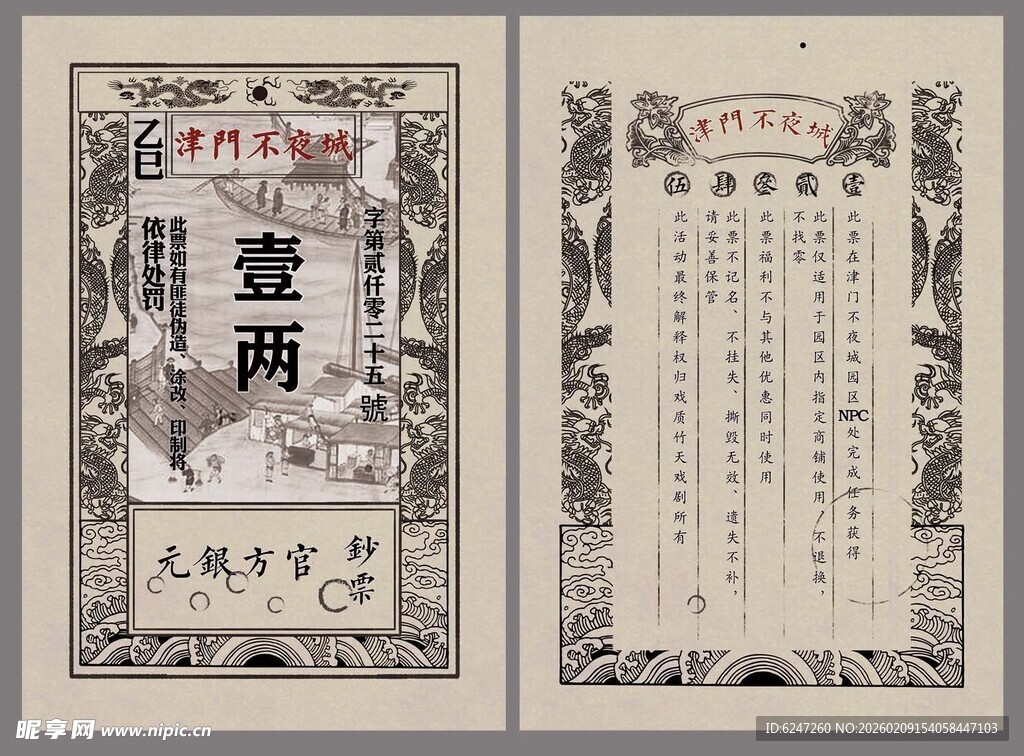 乙巳
津門不夜城
字第贰仟零二十五號
壹两
此票如有匪徒伪造、涂改、印制将
依律处罚
官方銀元
鈔票
津門不夜城
壹
此票在津门不夜城园区NPC处完成任务获得
贰
此票仅适用于园区内指定商铺使用，不退换，
不找零
叁
此票福利不与其他优惠同时使用
肆
此票不记名、不挂失、撕毁无效、遗失不补，
请妥善保管
伍
此活动最终解释权归戏质竹天戏剧所有
昵享网 www.nipic.cn
ID:6247260 NO:20260209154058447103